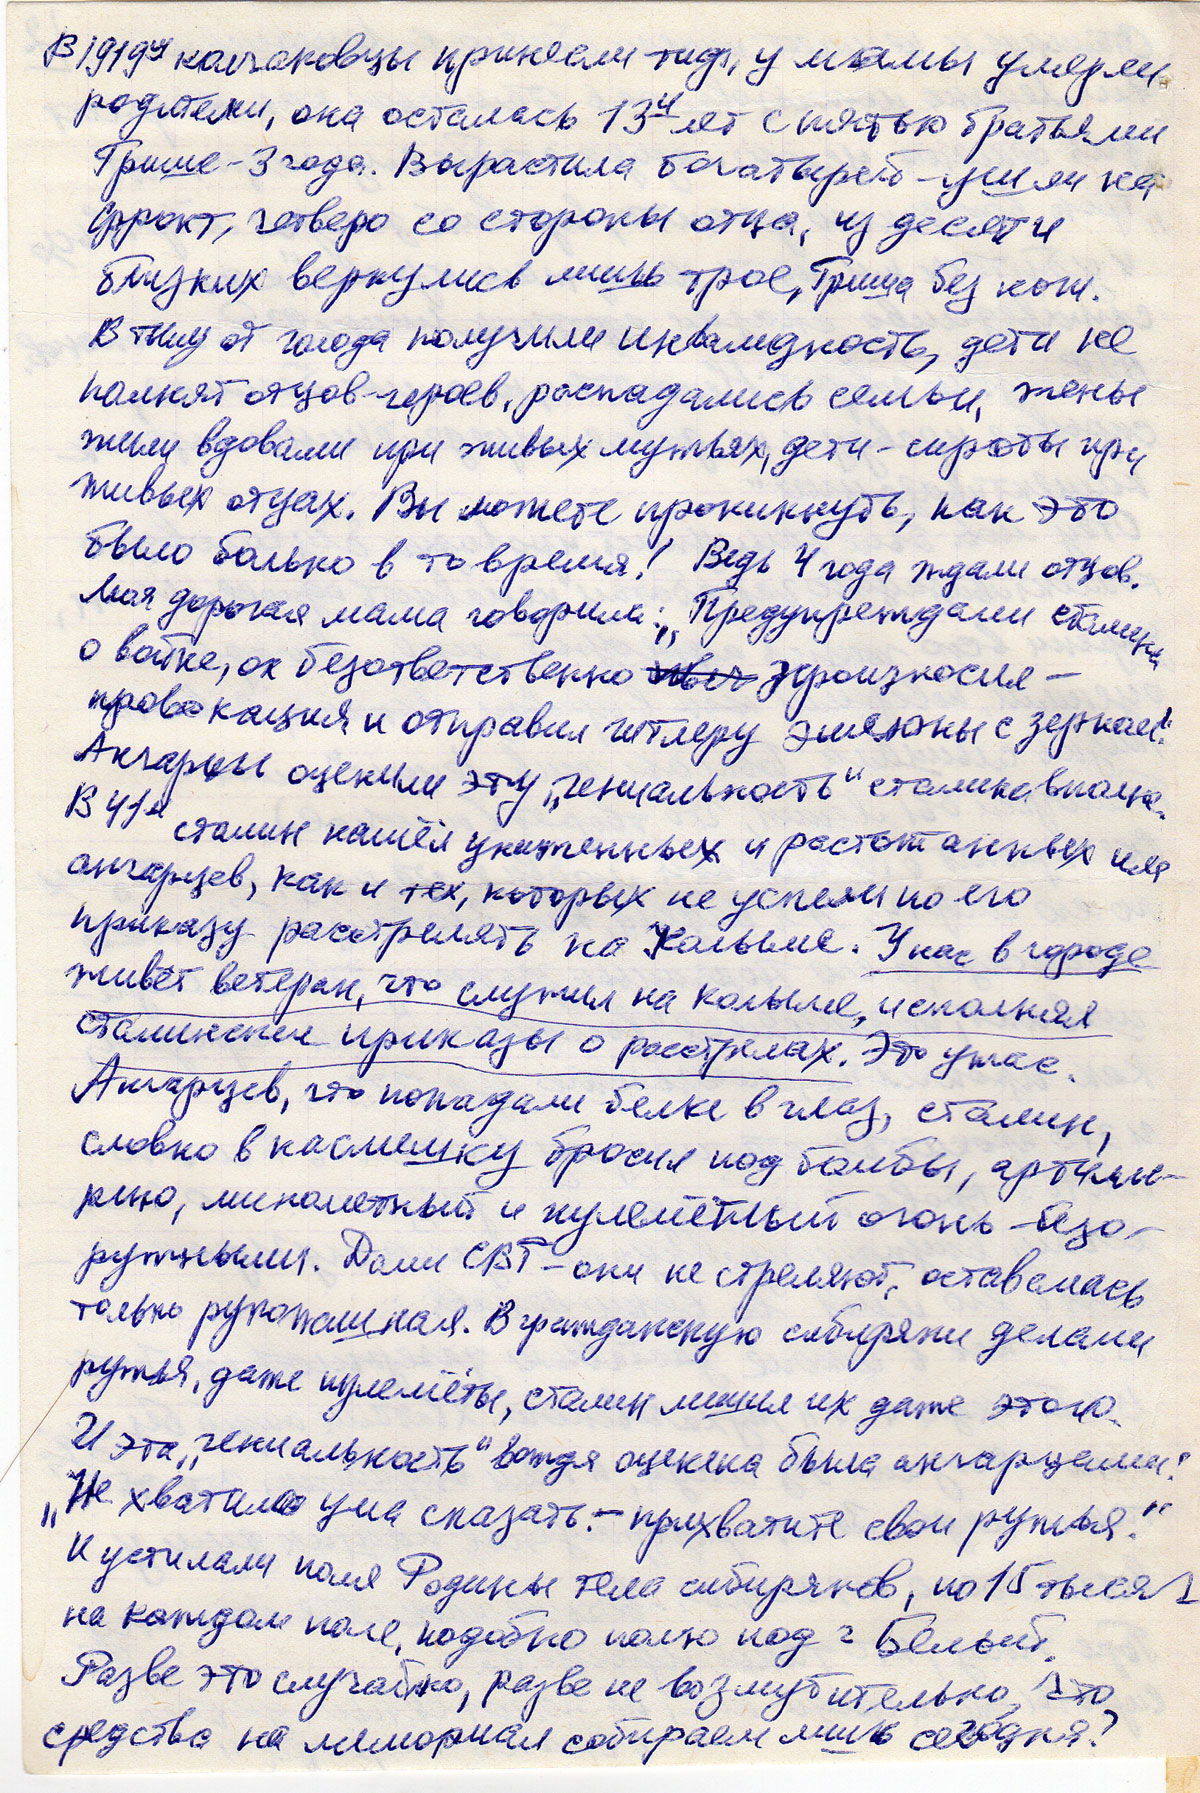 В 1919м колчаковцы принесли тиф, у мамы умерли
родители, она осталась 13и лет с пятью братьями
Грише - 3 года. Вырастила богатырей - ушли на
фронт, четверо со стороны отца, из десяти
близких вернулись лишь трое, Гриша без ноги.
В тылу от голода получили инвалидность, дети не
помнят отцов-героев, распадались семьи, жены
жили вдовами при живых мужьях, дети - сироты при
живых отцах. Вы можете проникнуть, как это
было больно в то время! Ведь 4 года ждали отцов.
Моя дорогая мама говорила: „Предупреждали сталина
о войне, он безответственно произносил -
провокация и отправил гитлеру эшелоны с зерном".
Ангарцы оценили эту „гениальность" сталина вполне.
В 41м сталин нашёл униженных и растоптанных им
ангарцев, как и тех, которых не успели по его
приказу расстрелять на Колыме. У нас в городе
живёт ветеран, что служил на колыме, исполнял
сталинские приказы о расстрелах. Это ужас.
Ангарцев, что попадали белке в глаз, сталин,
словно в насмешку бросил под бомбы, артилле-
рию, минометный и пулемётный огонь - безо-
ружными. Дали СВТ - они не стреляют, оставалась
только рукопашная. В гражданскую сибиряки делали
ружья, даже пулемёты, сталин лишил их даже этого.
И эта „гениальность" вождя оценена была ангарцами:
„Не хватило ума сказать: - прихватите свои ружья."
И устилали поля Родины тела сибиряков, по 15 тысяч
на каждом поле, подобно полю под г Белый.
Разве это случайно, разве не возмутительно, что
средства на мемориал собираем лишь сегодня?